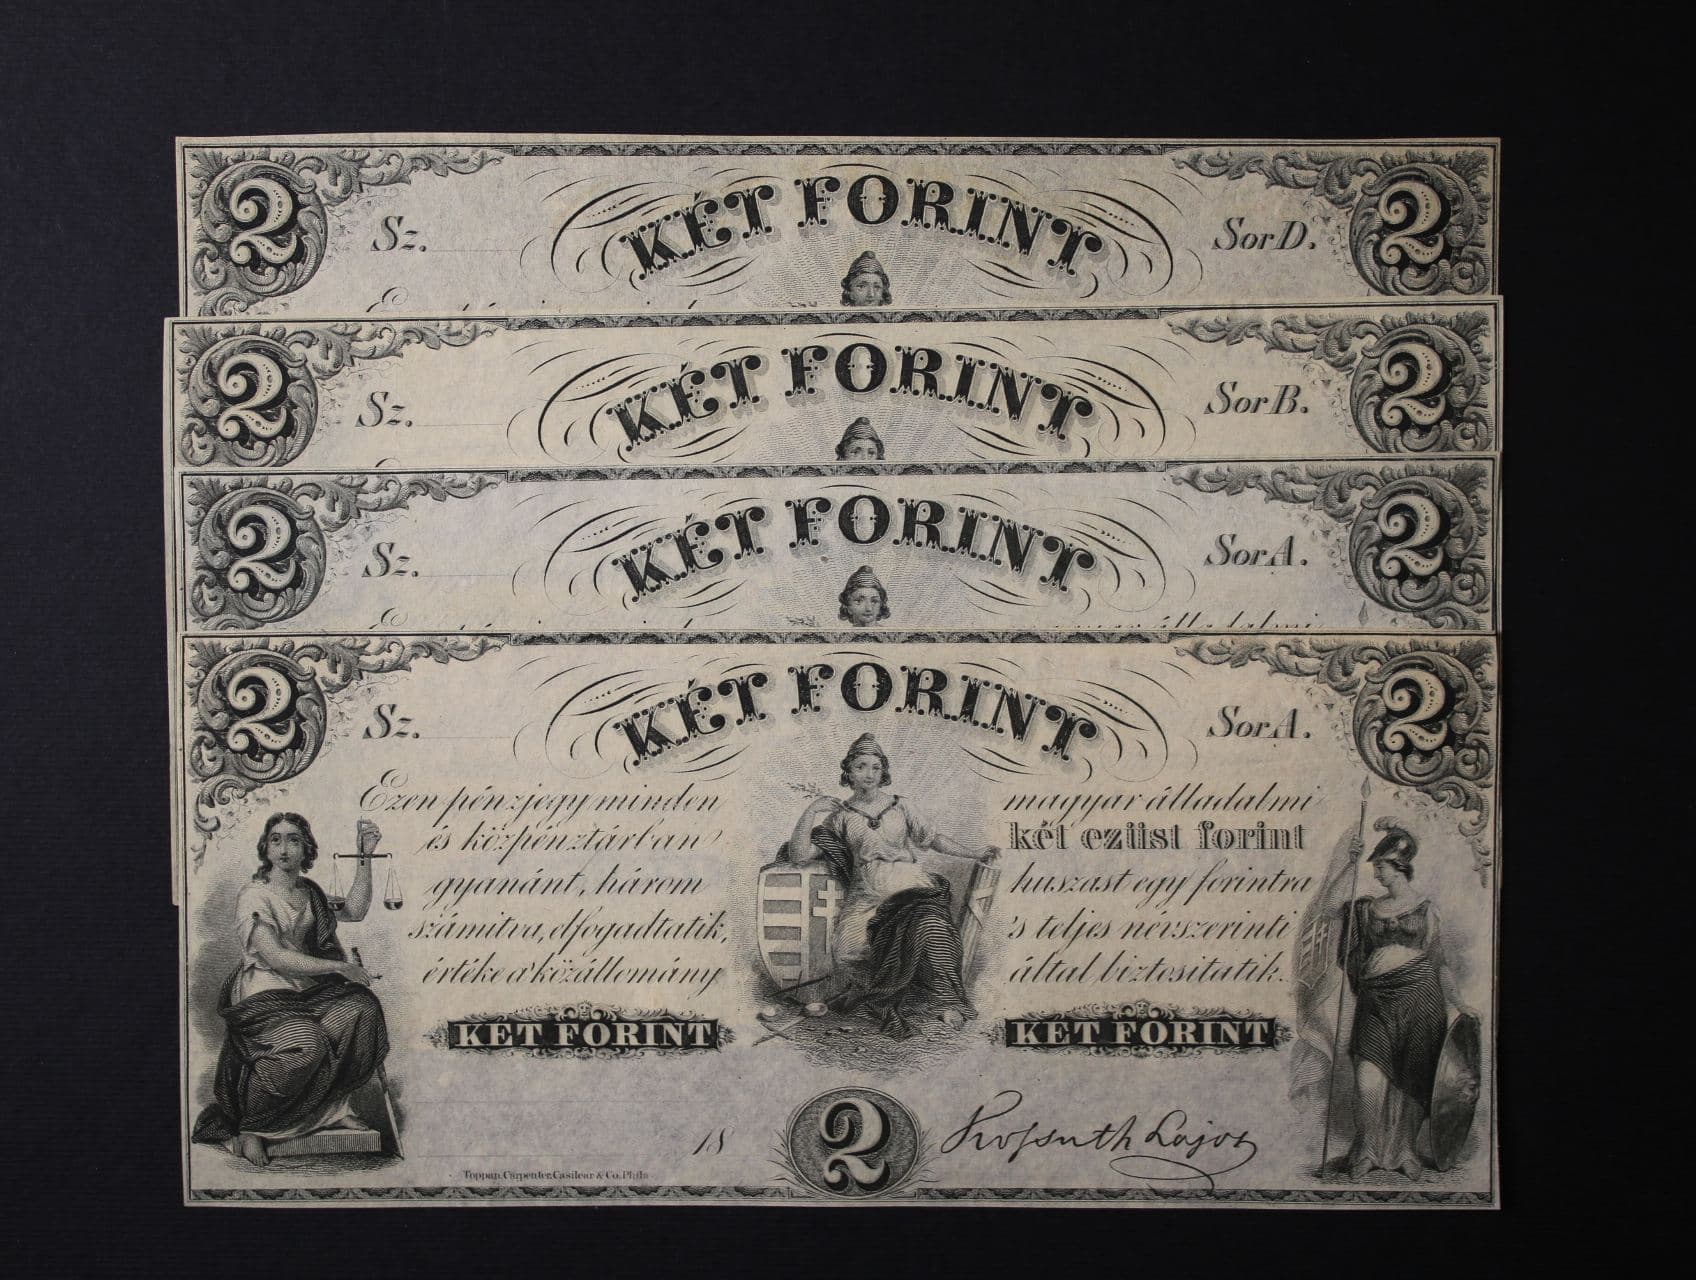 2 Sz. KÉT FORINT Sor D. 2
2 Sz. KÉT FORINT Sor B. 2
2 Sz. KÉT FORINT Sor A. 2
álladalmi
2 Sz. KÉT FORINT Sor A. 2
Ezen pénzjegy minden magyar álladalmi
és közpénztárban két ezüst forint
gyanánt, három huszast egy forintra
számitva, elfogadtatik, 's teljes névszerinti
értéke a' közállomány által biztositatik.
KÉT FORINT KÉT FORINT
18 2 Kossuth Lajos
Toppan, Carpenter, Casilear & Co. Phila